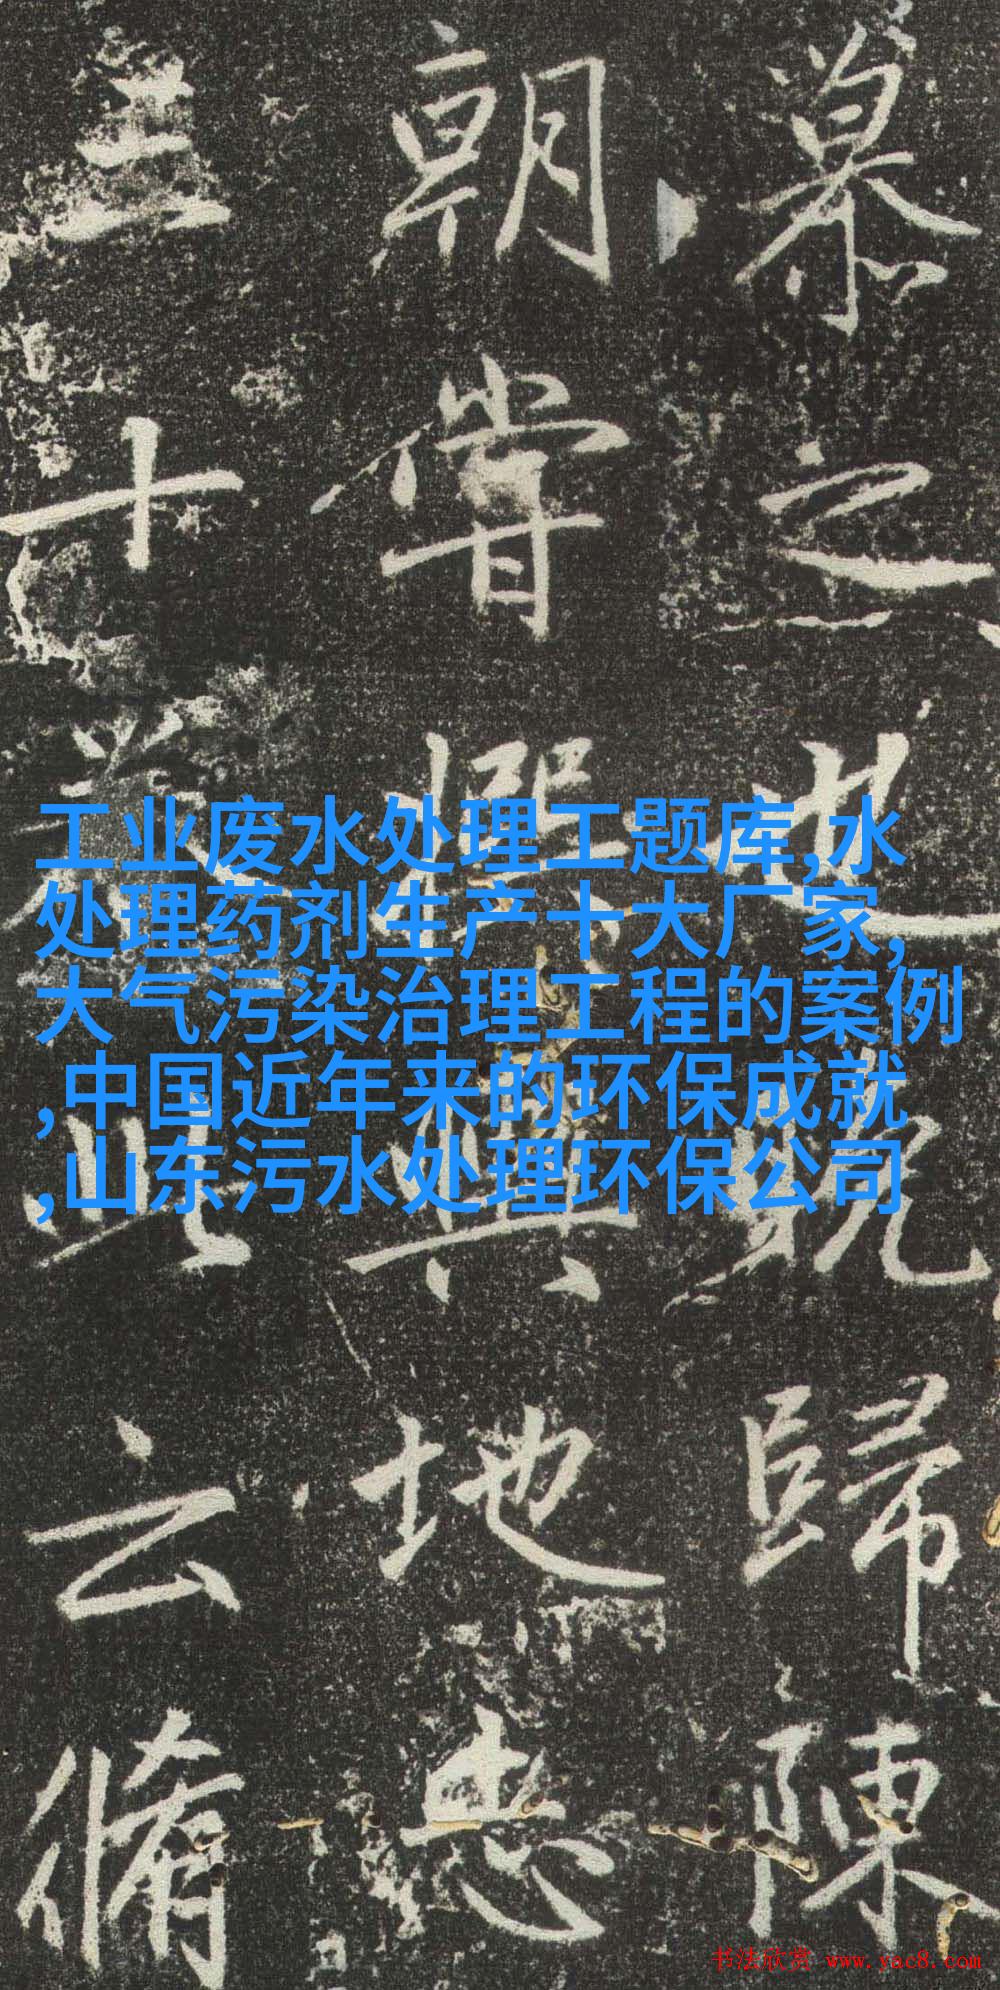 之也既歸陳
朝嘗與地
十此云脩
工业废水处理工题库,水
处理药剂生产十大厂家,
大气污染治理工程的案例
,中国近年来的环保成就
,山东污水处理环保公司
书法欣赏 www.yac8.com